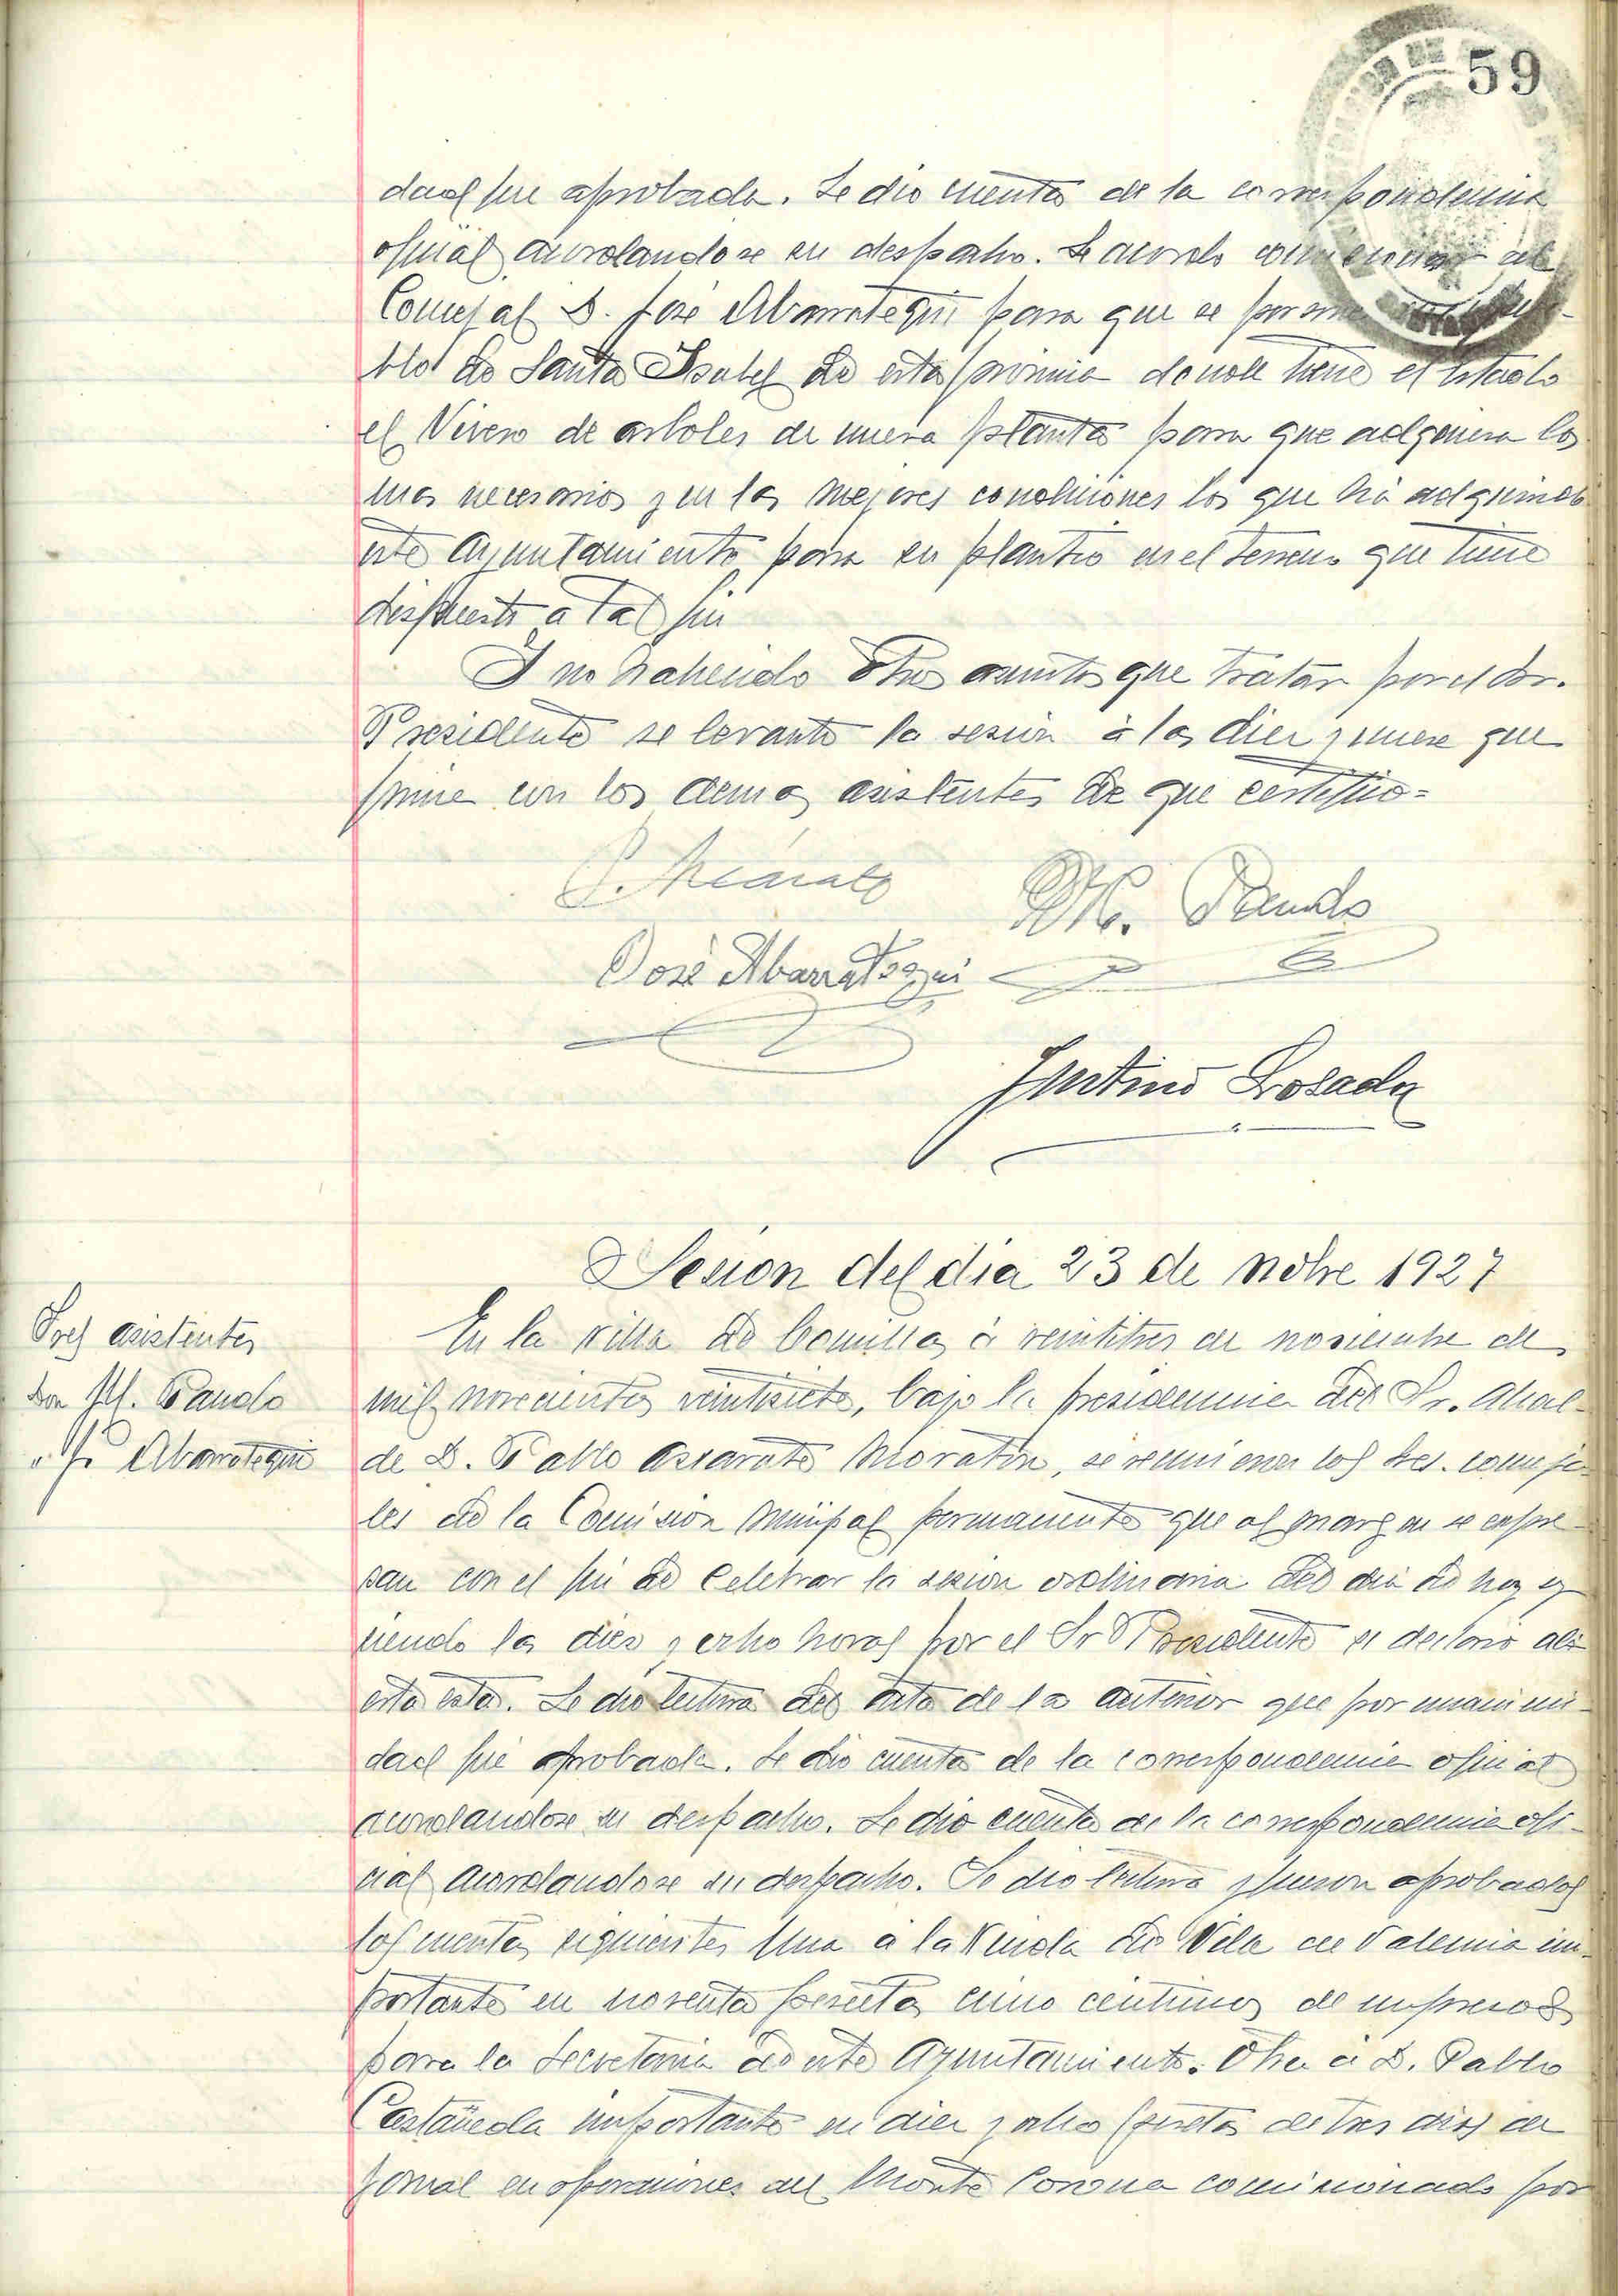 59
dad fue aprobada. Se dio cuenta de la correspondencia
oficial acordandose su despacho. Se acordo comisionar al
Concejal D. José Abarrategui para que se persone en el pue-
blo de Santa Isabel de esta provincia donde tiene el Estado
el Vivero de arboles de nueva planta para que adquiera los
mas necesarios y en las mejores condiciones los que há adquirido
este Ayuntamiento para su plantio en el terreno que tiene
dispuesto a tal fin
Y no habiendo otros asuntos que tratar por el Sr.
Presidente se levantó la sesión á las diez y nueve que
firma con los demas asistentes de que certifico=
P. Azcarate M. Pando
José Abarrategui
Justino Losada
Sesion del dia 23 de Nobre 1927
Sres asistentes
Don M. Pando
" J. Abarrategui
En la Villa de Comillas á veintitres de noviembre de
mil novecientos veintisiete, bajo la presidencia del Sr. Alcal-
de D. Pablo Azcarate Moratin, se reunieron los Sres. conceja-
les de la Comision Municipal permanente que al margen se expre-
san con el fin de celebrar la sesion ordinaria del dia de hoy y
siendo las diez y ocho horas por el Sr Presidente se declaró abi-
erta esta. Se dio lectura del acta de la anterior que por unanimi-
dad fué aprobada. Se dio cuenta de la correspondencia oficial
acordandose su despacho. Se dio cuenta de la correspondencia ofi-
cial acordandose su despacho. Se dio lectura y fueron aprobadas
las cuentas siguientes Una a la Viuda de Vila de Valencia im-
portante en noventa pesetas cinco centimos de impresos
para la Secretaria de este Ayuntamiento. Otra á D. Pablo
Castañeda importante en diez y ocho pesetas de tres dias de
jornal en operaciones del Monte Corona comisionado por